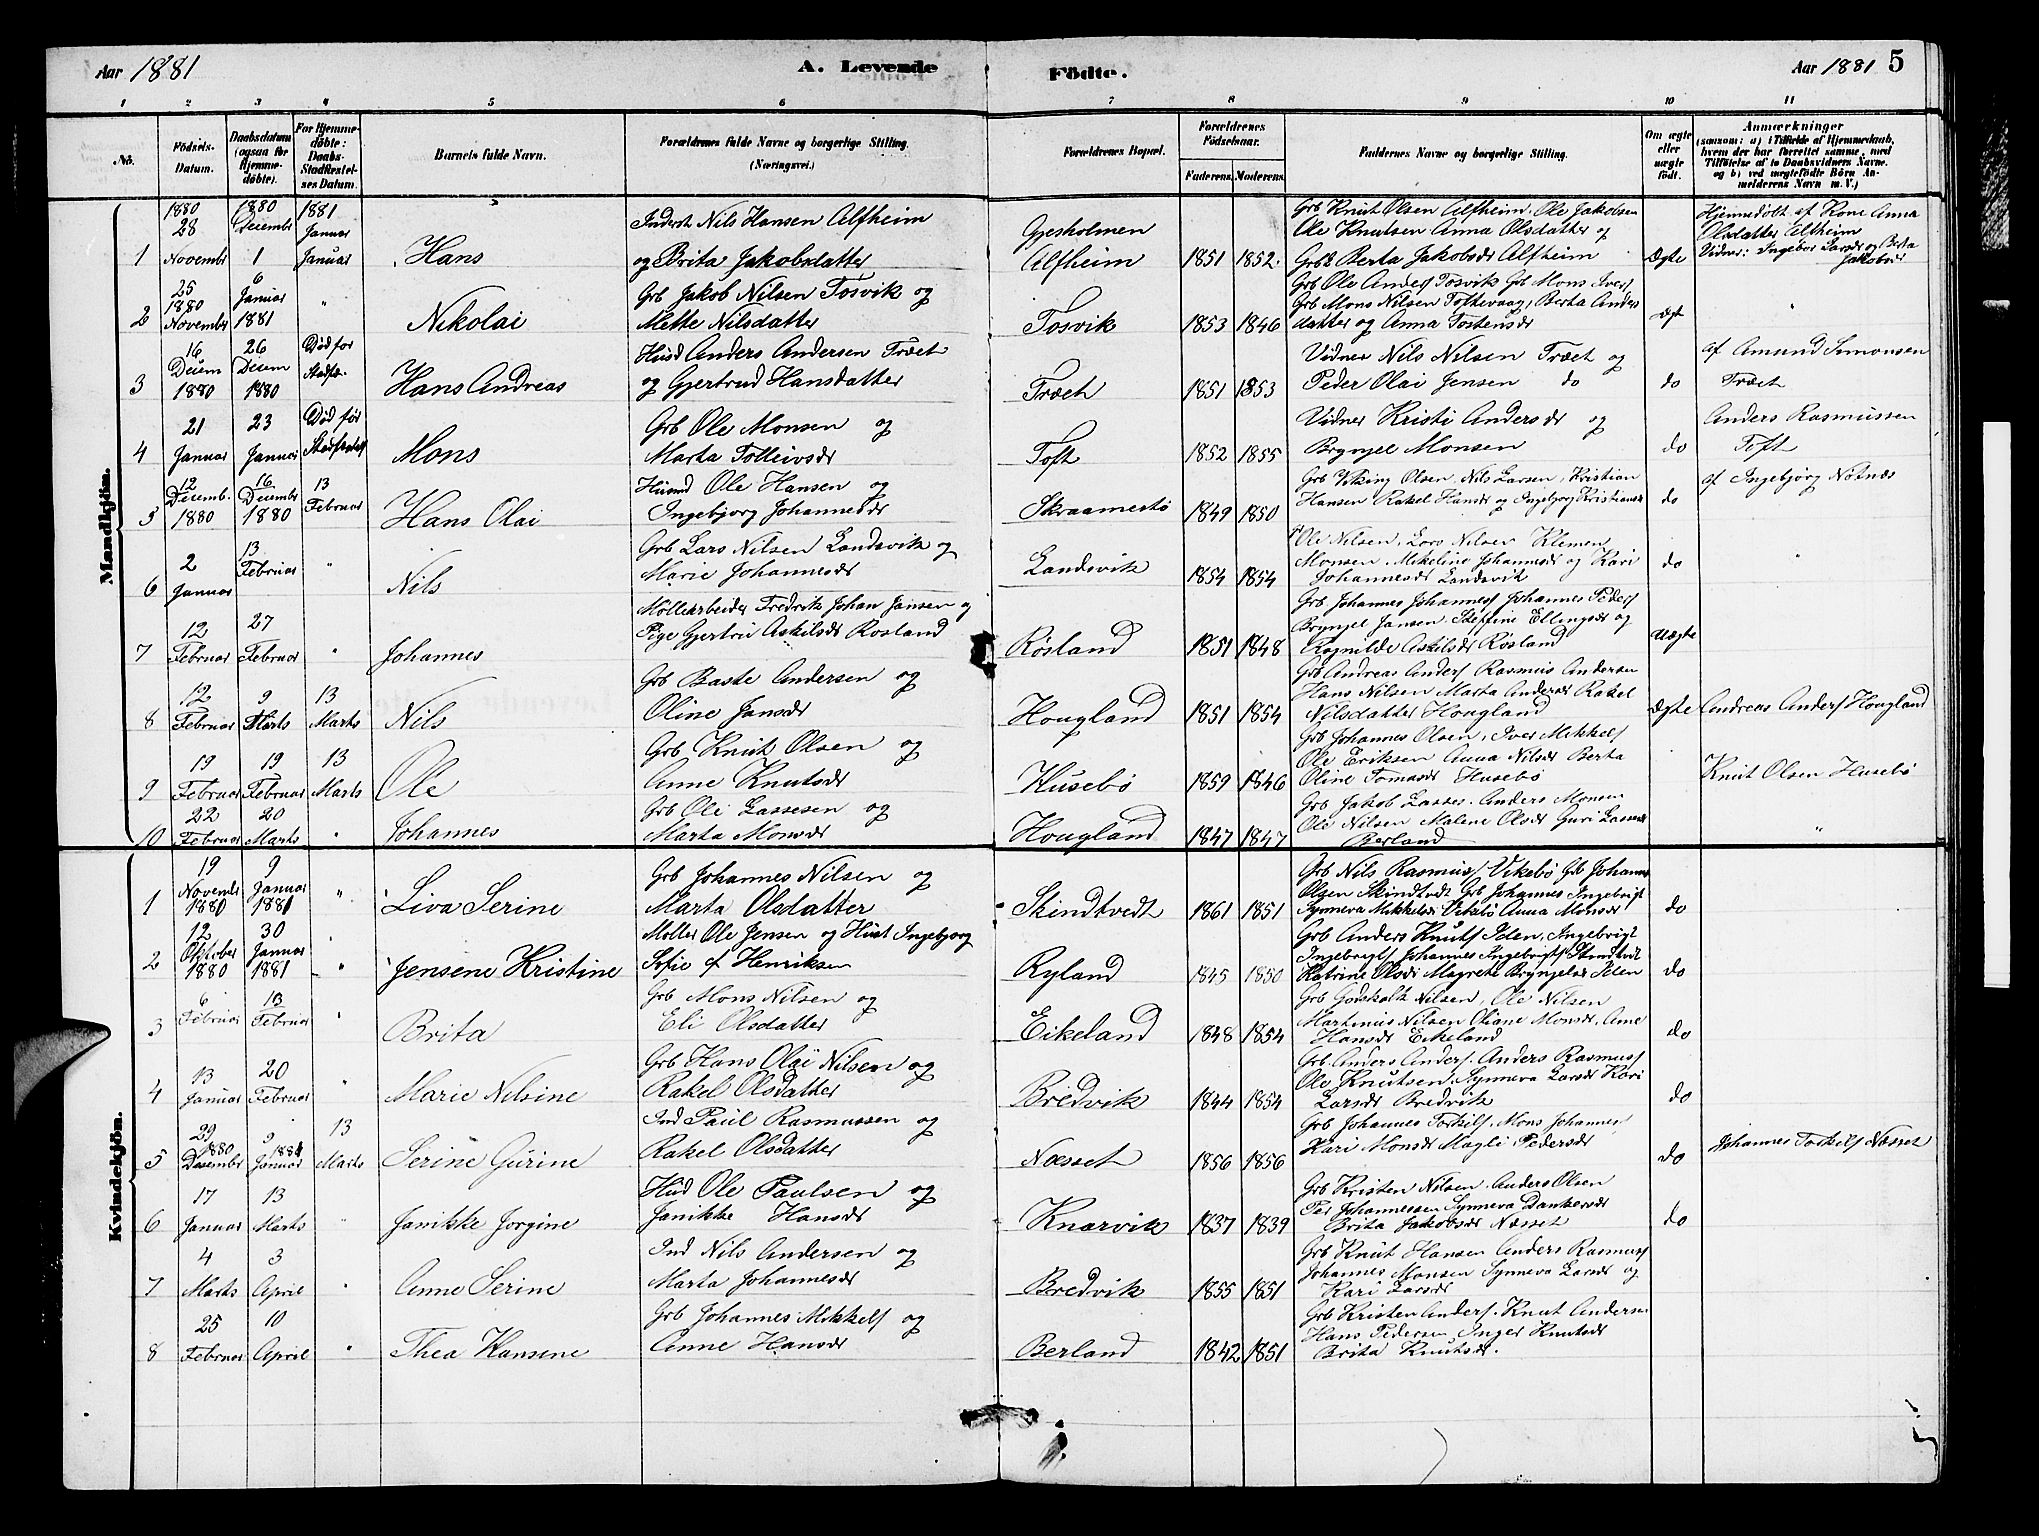 Aar 1881 A. Levende Födte. Aar 1881 5
1 2 3 4 5 6 7 8 9 10 11
No. Födsels-Datum. Daabsdatum (ogsaa for Hjemme-döbte). For Hjemme-döbte: Daabs-Stadfæstelses Datum. Barnets fulde Navn. Forældrenes fulde Navne og borgerlige Stilling. (Næringsvei.) Forældrenes Bopæl. Forældrenes Födselsaar. Faderens. Moderens. Faddernes Navne og borgerlige Stilling. Om ægte eller uægte födt. Anmærkninger (saasom: a) i Tilfælde af Hjemmedaab, hvem der har forrettet samme, med Tilföielse af to Daabsvidners Navne, og b) ved uægtefödte Börn Anmelderens Navn m. V.)
Mandkjön.
1880 1880 1881
28 Decembr Januar Inderst Nils Hansen Alfheim Gjesholmen Grb Knut Olsen Alfheim, Ole Jakobsen Hjemmedöbt af Kone Anna
Ole Knutsen Anna Olsdatter og Olsdatter Alfheim
1 Novembr 1 Januar Hans og Brita Jakobsdatter Alfheim 1851 1852 Grb Berta Jakobsdr Alfheim Ægte Vidner: Ingebor Larsdr og Berta Jakobsdr
25 6
1880 Januar " Grb Jakob Nilsen Tosvik og Grb Ole Anders Tosvik Grb Mons Ivers
Grb Mons Nilsen Toltevaag, Berta Anders "
2 Novembr 1881 Nikolai Mette Nilsdatter Tosvik 1853 1846 datter og Anna Tostensdr ægt
16 26 Död for Husd Anders Andersen Træet Vidner Nils Nilsen Træet og af Amund Simonsen
3 Decem 1880 Decem 1880 Stadfæ. Hans Andreas og Gjertrud Hansdatter Træet 1851 1853 Peder Olai Jensen do do Træet
21 23 Död før Grb Ole Monsen og Vidner Kristi Andersdr og Anders Rasmussen
4 Januar Januar Mons Marta Tolleivsdr Toft 1852 1855 Brynjel Monsen do Toft
12 16 13 Husmd Ole Hansen og Grb Viking Olsen, Nils Larsen, Kristian af Ingebjorg Notnæs
5 Decemb. 1880 Decembr 1880 Februar Hans Olai Ingebjorg Johannesdr Skraamestö 1849 1850 Hansen Rakel Hansdr og Ingebjorg Kristiansdr do
2 13 Grb Lars Nilsen Landsvik og Ole Nilsen, Lars Nilsen Klemen
Februar " Monsen, Mikeline Johannesdr og Kari "
6 Januar Nils Marie Johannesdr Landsvik 1854 1854 Johannesdr Landsvik do
12 27 Möllearbeider Fredrik Johan Jansen og Grb Johannes Johannes Johannes Peders
Pige Gjertrü Askilsdr Rosland Brynjel Jansen Steffine Ellingsdr og
7 Februar Februar " Johannes Rösland 1851 1848 Ragnilde Askilsdr Rösland Uægte
12 9 13 Grb Baste Andersen og Grb Andreas Anders Rasmus Andersen
Hans Nilsen Marta Andersdr Rakel
8 Februar Marts Marts Nils Oline Jansdr Hougland 1851 1854 Nilsdatter Hougland Ægte Andreas Anders Hougland
19 19 13 Grb Knut Olsen og Grb Johannes Olsen, Iver Mikkels
Ole Eriksen Anna Nilsdr Berta
9 Februar Februar Marts Ole Anne Knutsdr Husebö 1859 1846 Oline Tomasdr Husebö Knut Olsen Husebö
22 20 Grb Ole Lassesen og Grb Jakob Lasses. Anders Monsen
Ole Nilsen Malene Olsdr Guri Lassesdr
10 Februar Marts " Johannes Marta Monsdr Hougland 1847 1847 Berland "
Kvindekjön.
19 9 Grb Johannes Nilsen og Grb Nils Rasmus Vikebö Grb Johannes
Novembr Januar " Olsen Skindtvedt Grb Johannes Ingebrigt
1 1880 1881 Liva Serine Marta Olsdatter Skindtvedt 1861 1851 Synneva Mikkelsdr Vikebö Anna Monsdr do
12 30 Möller Ole Jensen og Hust Ingebjorg Grb Anders Knuts Iden, Ingebrigt
Oktober Januar Ingebrigts Johannes Ingebrigts Skindtvedt
2 1880 1881 " Jensene Kristine Sofie f Henriksen Ryland 1845 1850 Katrine Olsdr Magrete Brynjelsdr Iden do
6 13 Grb Mons Nilsen og Grb Godskalk Nilsen, Ole Nilsen
Februar Februar " Martinus Nilsen Oliane Monsdr, Ane
3 Brita Eli Olsdatter Eikeland 1848 1854 Hansdr Eikeland do
13 20 Grb Hans Olai Nilsen og Grb. Anders Anders. Anders Rasmus
Ole Knutsen. Synneva Larsdr Kari
4 Januar Februar " Marie Nilsine Rakel Olsdatter Bredvik 1844 1854 Larsdr Bredvik do
29 9 13 Ind Paul Rasmussen og Grb Johannes Torkils. Mons Johannes
5 1880 Desember 1881 Januar Marts Serine Gurine Rakel Olsdatter Næsset 1856 1856 Kari Monsdr Magli Pedersdr do Johannes Torkils Næsset
17 13 Husd Ole Paulsen og Grb Kristen Nilsen. Anders Olsen
Per Johannessen Synneva Dankersdr
6 Januar Marts " Janikke Jorgine Janikke Hansdr Knarvik 1837 1839 Brita Jakobsdr Næsset do
4 3 Ind Nils Andersen og Grb Knut Hansen Anders Rasmus
Johannes Monsen Synneva Larsdr og
7 Marts April " Anne Serine Marta Johannesdr Bredvik 1855 1851 Kari Larsdr
25 10 Grb Johannes Mikkels og Grb Kristen Anders. Knut Anders
Hans Pedersen Inger Knutsdr
8 Februar April " Thea Hansene Anne Hansdr Berland 1842 1851 Brita Knutsdr.